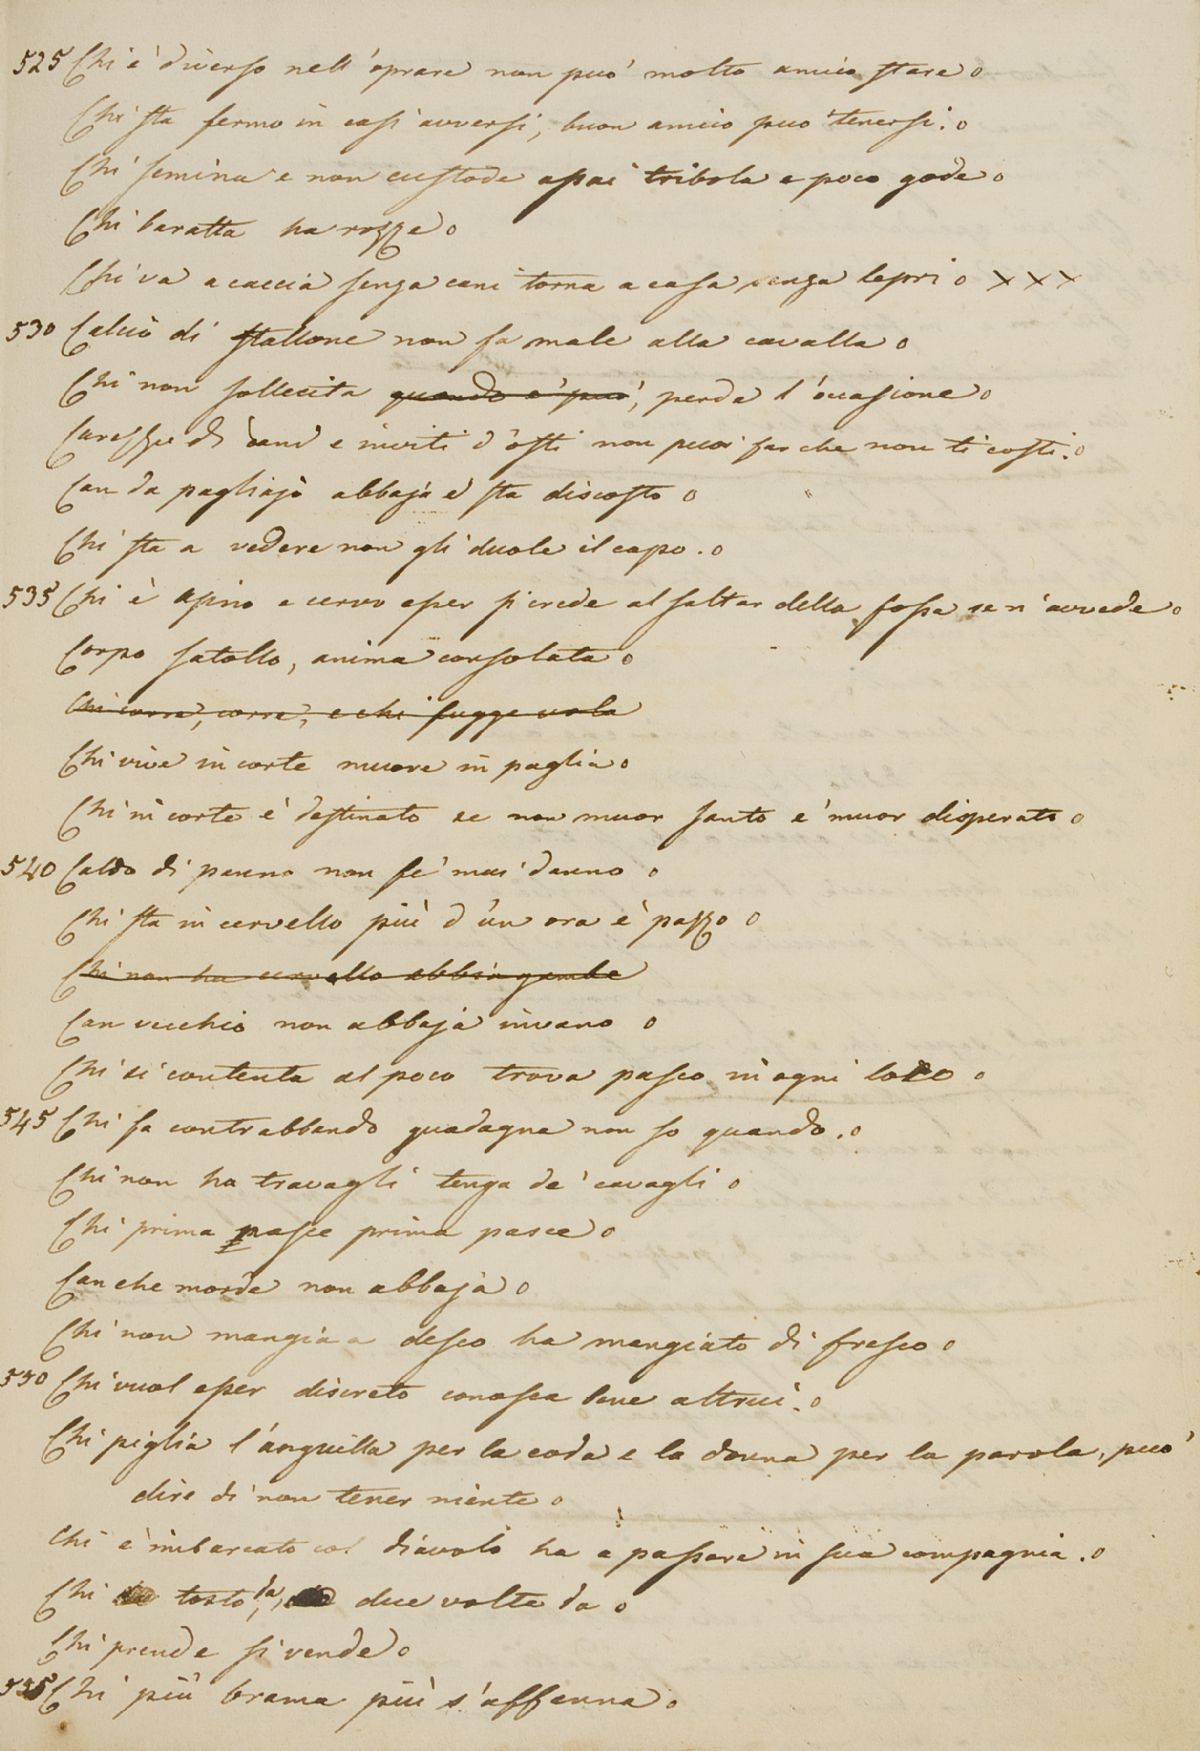 525 Chi è diverso nell'oprare non può molto amico stare o
Chi sta fermo in casi avversi, buon amico può tenersi. o
Chi semina e non custode assai tribola e poco gode o
Chi baratta ha rozze o
Chi va a caccia senza cani torna a casa senza lepri o XXX
530 Calcio di stallone non fa male alla cavalla o
Chi non sollecita quando e' può, perde l'occasione o
Carezze di cani e inviti d'osti non puoi far che non ti costi. o
Can da pagliajo abbaja e sta discosto o
Chi sta a vedere non gli duole il capo. o
535 Chi è asino e cervo esser si crede al saltar della fossa se n'avvede o
Corpo satollo, anima consolata o
Chi corre, corre, e chi fugge vola
Chi vive in corte muore in paglia o
Chi in corte è destinato se non muor santo e' muor disperato o
540 Caldo di panno non fe' mai danno o
Chi sta in cervello più d'un ora è pazzo o
Chi non ha cervello abbia gambe
Can vecchio non abbaja invano o
Chi si contenta al poco trova pasco in ogni loco o
545 Chi fa contrabbando guadagna non so quando. o
Chi non ha travagli tenga de' cavagli o
Chi prima nasce prima pasce o
Can che morde non abbaja o
Chi non mangia a desco ha mangiato di fresco o
550 Chi vuol esser discreto conosca bene altrui. o
Chi piglia l'anguilla per la coda e la donna per la parola, può
dire di non tener niente o
Chi è imbarcato col diavolo ha a passare in sua compagnia. o
Chi tosto da, due volte da o
Chi prende si vende o
555 Chi più brama più s'affanna o